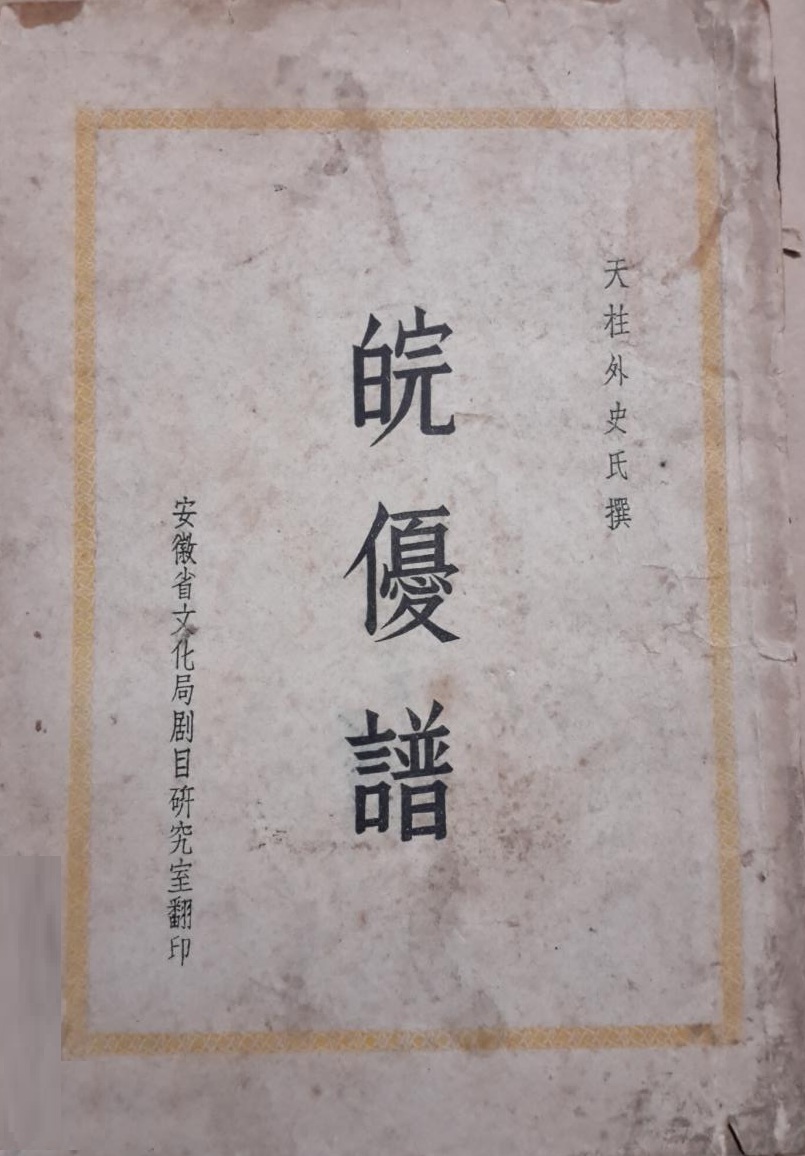 天柱外史氏撰
皖優譜
安徽省文化局剧目研究室翻印